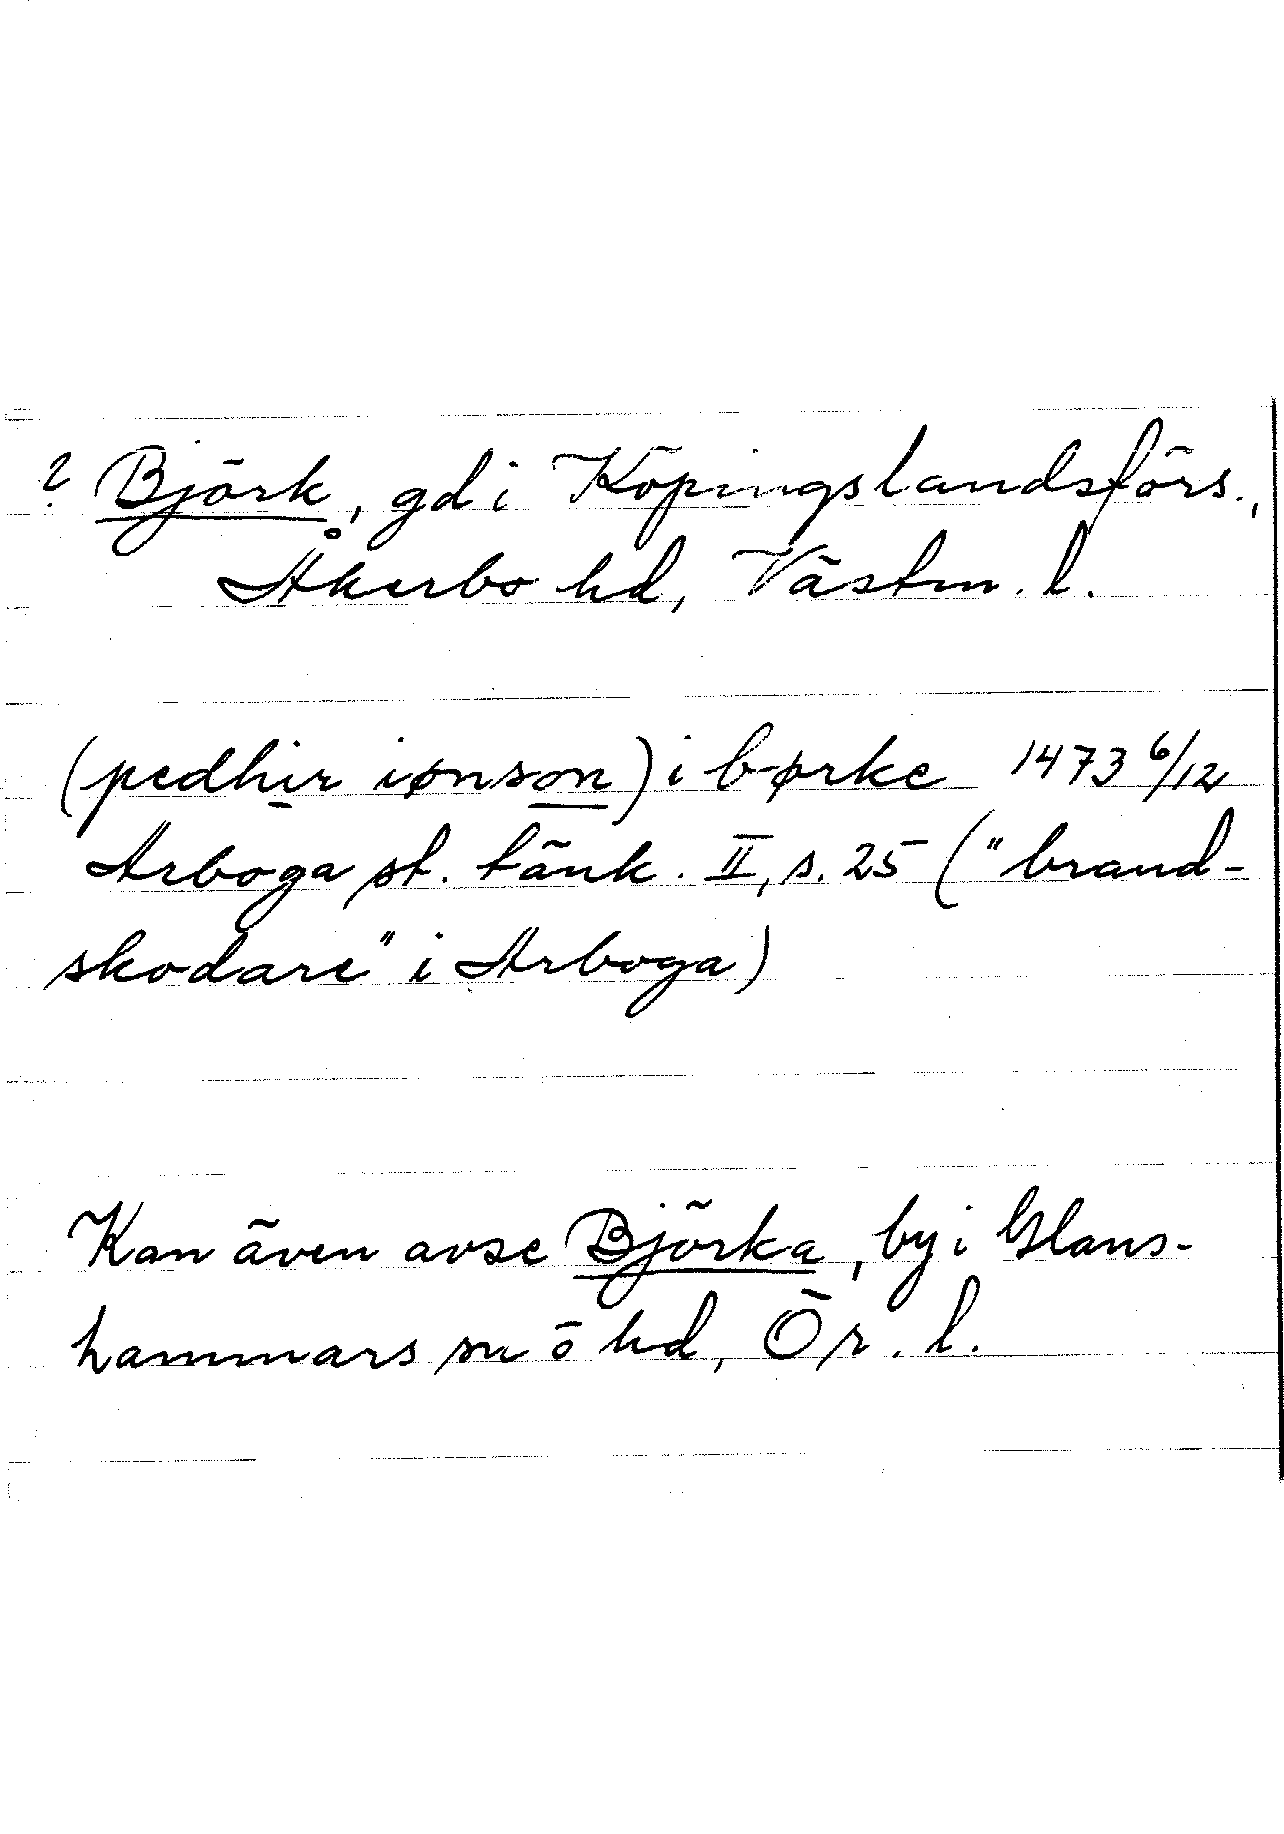 ? Björk, gd i Köpingslandsförs.,
Åkerbo hd, Västm. l.
(pedhir iønson) i børke 1473 6/12
Arboga st. tänk. II, s. 25 ("brand-
skodare" i Arboga)
Kan även avse Björka, by i Glans-
hammars sn ö hd, Ör. l.